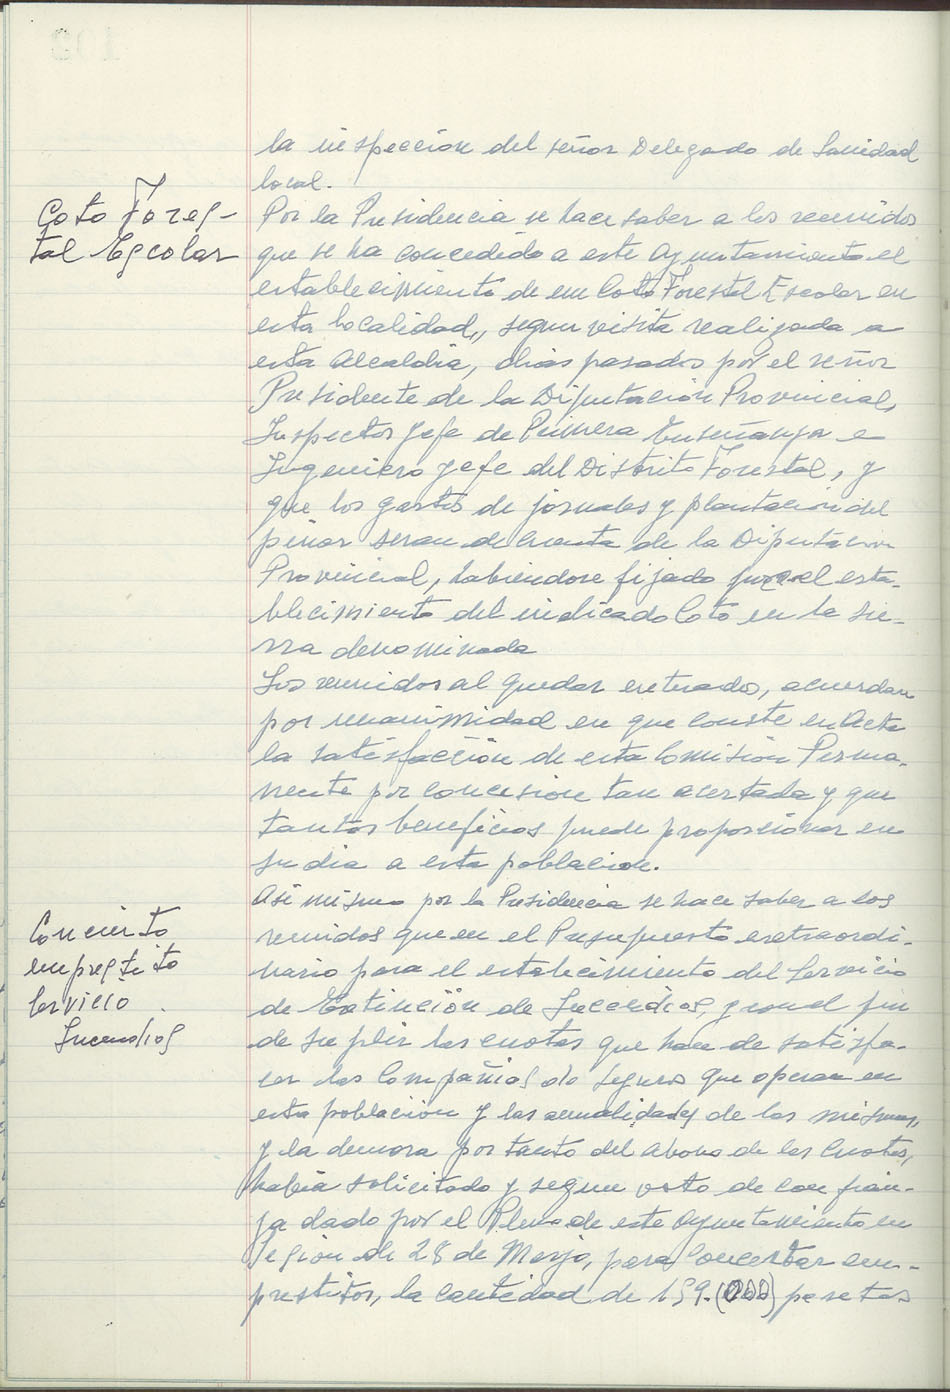 la inspección del señor Delegado de Sanidad
local.
Coto Fores-
tal Escolar
Por la Presidencia se hace saber a los reunidos
que se ha concedido a este Ayuntamiento el
establecimiento de un Coto Forestal Escolar en
esta localidad, segun visita realizada a
esta Alcaldia, dias pasados por el señor
Presidente de la Diputación Provincial,
Inspector Jefe de Primera Enseñanza e
Ingeniero Jefe del Distrito Forestal, y
que los gastos de jornales y plantación del
pinar seran de cuenta de la Diputación
Provincial, habiendose fijado para el esta-
blecimiento del indicado Coto en la Sie-
rra denominada
Los reunidos al quedar enterados, acuerdan
por unanimidad en que conste en Acta
la satisfacción de esta Comisión Perma-
nente por concesion tan acertada y que
tantos beneficios puede proporcionar en
su dia a esta poblacion.
Concierto
emprestito
Servicio
Incendios
Asi mismo por la Presidencia se hace saber a los
reunidos que en el Presupuesto extraordi-
nario para el establecimiento del Servicio
de Extinción de Incendios, y con el fin
de suplir las cuotas que han de satisfa-
cer las Compañias de Seguros que operan en
esta población y las anualidades de las mismas,
y la demora por tanto del abono de las Cuotas,
habia solicitado y segun voto de confian-
za dado por el Pleno de este Ayuntamiento en
Sesión de 28 de Marzo, para Concertar em-
prestitos, la cantidad de 159.(000) pesetas